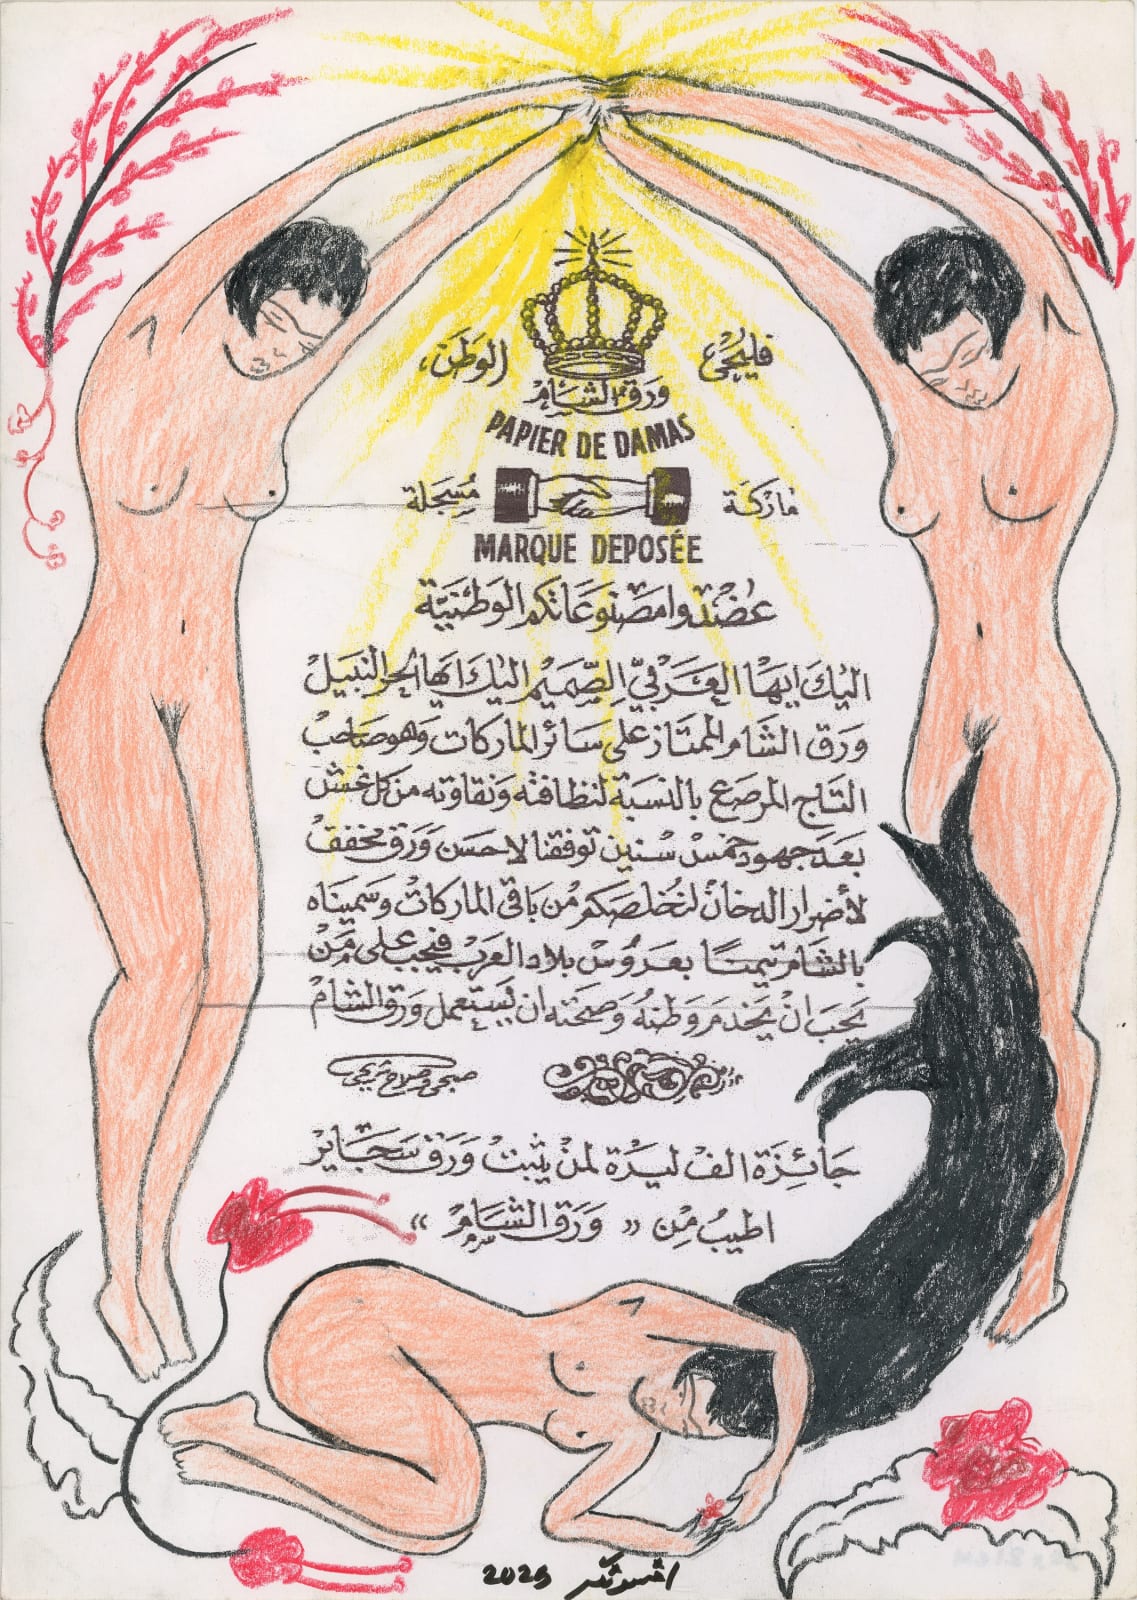 فليحيى الوطن
ورق الشام
PAPIER DE DAMAS
ماركة مسجلة
MARQUE DEPOSÉE
عضدوا مصنوعاتكم الوطنية
اليك ايها العربيّ الصّميم اليك ايها الحر النبيل
ورق الشام الممتاز على سائر الماركات وهو صاحب
التاج المرصع بالنسبة لنظافته ونقاوته من كل غش
بعد جهود خمس سنين توفقنا لاحسن ورق مخفف
لأضرار الدخان لنخلصكم من باقي الماركات وسميناه
بالشام تيمناً بعروس بلاد العرب فيجب على من
يحب ان يخدم وطنه وصحته ان يستعمل ورق الشام
صبحي وصلاح
جائزة الف ليرة لمن يثبت ورق سجاير
اطيب من « ورق الشام »
2025